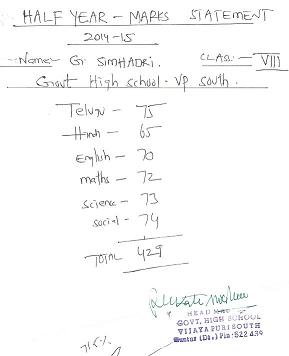 HALF YEAR - MARKS STATEMENT
2014-15
Name - G. SIMHADRI. CLASS:- VIII
Govt High school - VP south.
Telugu - 75
Hindi - 65
English - 70
maths - 72
science - 73
social - 74
TOTAL 429
HEAD MASTER
GOVT. HIGH SCHOOL
VIJAYAPURI SOUTH
Guntur (Dt.) Pin: 522 439